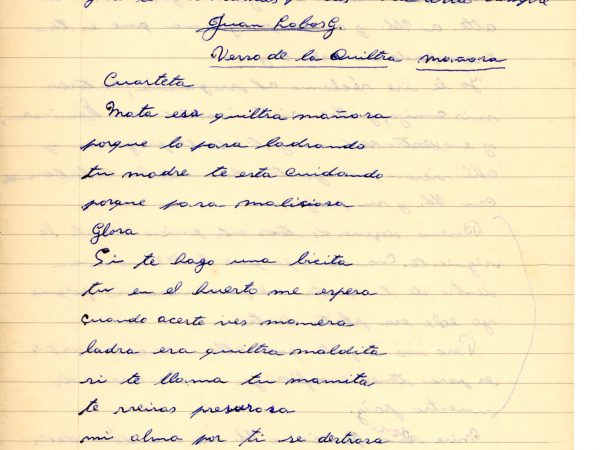 Juan Lobos G.
Verso de la Quiltra mañosa
Cuarteta
Mata esa quiltra mañosa
porque lo pasa ladrando
tu madre te esta cuidando
porque pasa maliciosa
Glosa
Si te hago una bicita
tu en el huerto me espera
cuando acerte ves manera
ladra esa quiltra maldita
si te llama tu mamita
te reiras presurosa
mi alma por ti se destrosa